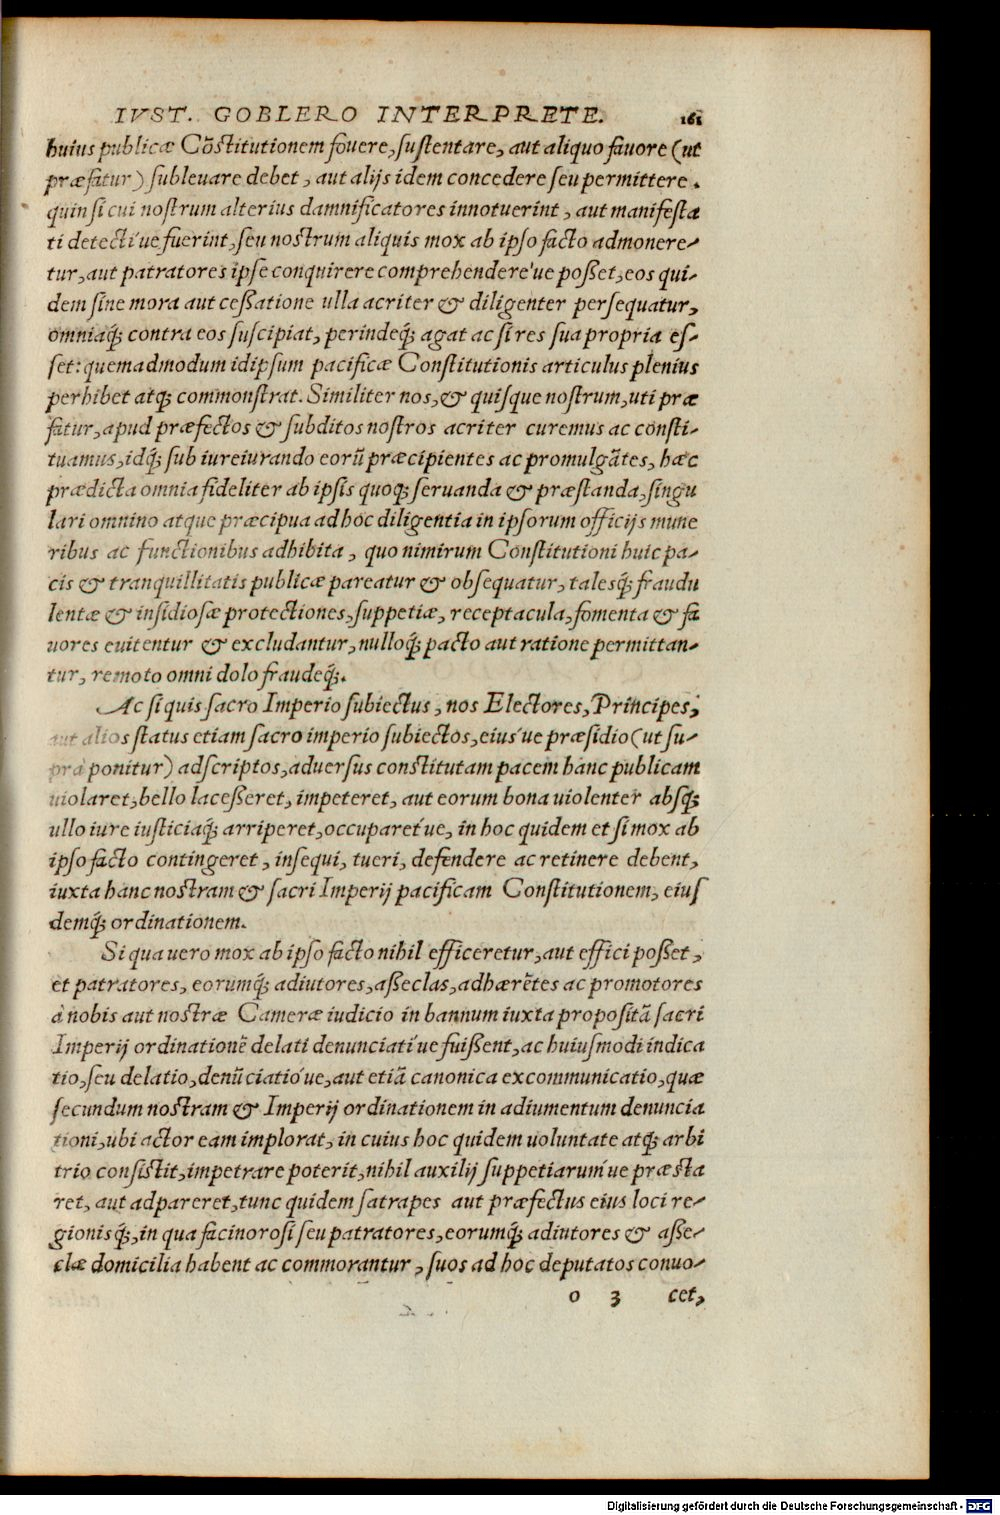 IVST. GOBLERO INTERPRETE. 161
huius publicæ Cõstitutionem fouere, sustentare, aut aliquo fauore (ut
præfatur) subleuare debet, aut alijs idem concedere seu permittere.
quin si cui nostrum alterius damnificatores innotuerint, aut manifesta
ti detecti´ue fuerint, seu nostrum aliquis mox ab ipso facto admonere-
tur, aut patratores ipse conquirere comprehendere´ue posset, eos qui-
dem sine mora aut cessatione ulla acriter & diligenter persequatur,
omniaq́; contra eos suscipiat, perindeq́; agat ac si res sua propria es-
set: quemadmodum idipsum pacificæ Constitutionis articulus plenius
perhibet atq; commonstrat. Similiter nos, & quisque nostrum, uti præ
fatur, apud præfectos & subditos nostros acriter curemus ac consti-
tuamus, idq́; sub iureiurando eorũ præcipientes ac promulgãtes, hæc
prædicta omnia fideliter ab ipsis quoq; seruanda & præstanda, singu
lari omnino atque præcipua ad hoc diligentia in ipsorum officijs mune
ribus ac functionibus adhibita, quo nimirum Constitutioni huic pa-
cis & tranquillitatis publicæ pareatur & obsequatur, talesq́; fraudu
lentæ & insidiosæ protectiones, suppetiæ, receptacula, fomenta & fa
uores euitentur & excludantur, nulloq́; pacto aut ratione permittan-
tur, remoto omni dolo fraudeq́;.
Ac si quis sacro Imperio subiectus, nos Electores, Principes,
aut alios status etiam sacro imperio subiectos, eius´ue præsidio (ut su-
pra ponitur) adscriptos, aduersus constitutam pacem hanc publicam
uiolaret, bello lacesseret, impeteret, aut eorum bona uiolenter absq;
ullo iure iusticiaq́; arriperet, occuparet´ue, in hoc quidem et si mox ab
ipso facto contingeret, insequi, tueri, defendere ac retinere debent,
iuxta hanc nostram & sacri Imperij pacificam Constitutionem, eius
demq́; ordinationem.
Si qua uero mox ab ipso facto nihil efficeretur, aut effici posset,
et patratores, eorumq́; adiutores, asseclas, adhærẽtes ac promotores
à nobis aut nostræ Cameræ iudicio in bannum iuxta propositã sacri
Imperij ordinationẽ delati denunciati´ue fuissent, ac huiusmodi indica
tio, seu delatio, denũciatio´ue, aut etiã canonica excommunicatio, quæ
secundum nostram & Imperij ordinationem in adiumentum denuncia
tioni, ubi actor eam implorat, in cuius hoc quidem uoluntate atq; arbi
trio consistit, impetrare poterit, nihil auxilij suppetiarum´ue præsta
ret, aut adpareret, tunc quidem satrapes aut præfectus eius loci re-
gionisq́;, in qua facinorosi seu patratores, eorumq́; adiutores & asse-
clæ domicilia habent ac commorantur, suos ad hoc deputatos conuo-
o 3 cet,
Digitalisierung gefördert durch die Deutsche Forschungsgemeinschaft - DFG